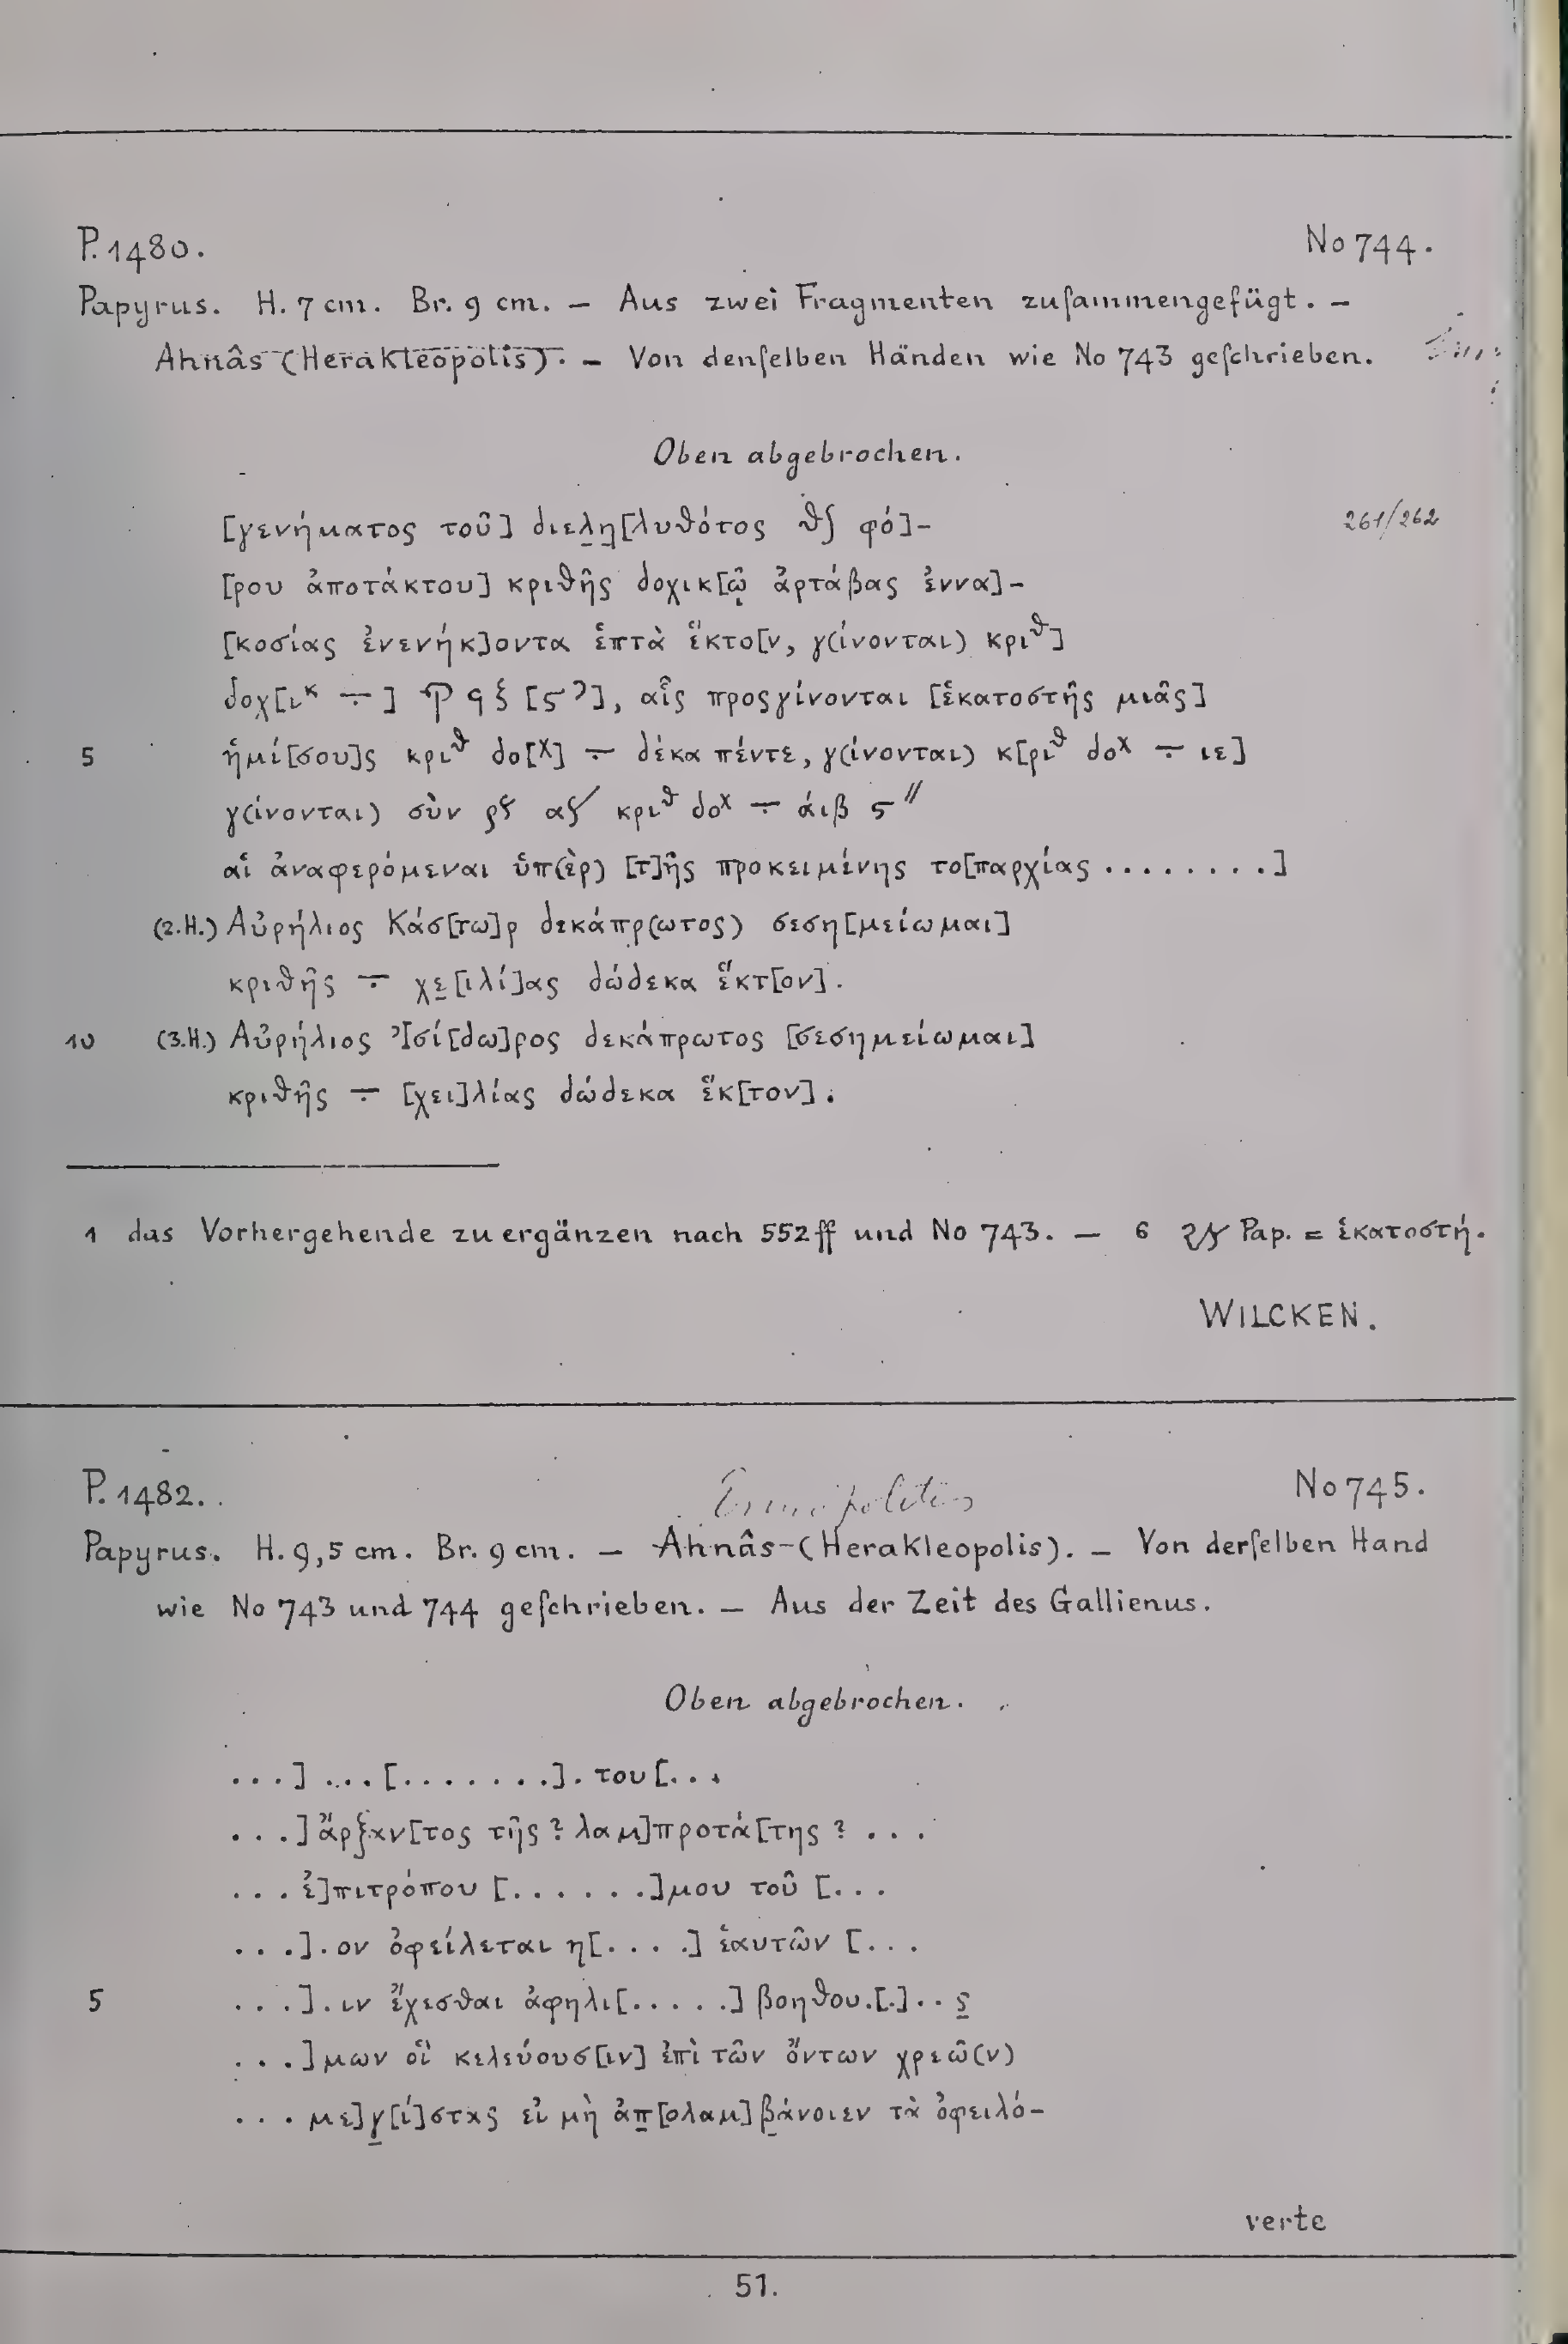 P. 1480. No 744.
Papyrus. H. 7 cm. Br. 9 cm. — Aus zwei Fragmenten zuſammengefügt. —
Ahnâs (Herakleopolis). — Von denſelben Händen wie No 743 geſchrieben.
Oben abgebrochen.
[γενήματος τοῦ] διελη[λυθότος θʃ φό]- 261/262
[ρου ἀποτάκτου] κριθῆς δοχικ[ῷ ἀρτάβας ἐννα]-
[κοσίας ἐνενήκ]οντα ἑπτὰ ἕκτο[ν, γ(ίνονται) κριθ]
δοχ[ικ ÷] ϡ ϥ ξ [ς?], αἷς προςγίνονται [ἑκατοστῆς μιᾶς]
5 ἡμί[σου]ς κριθ δο[χ] ÷ δέκα πέντε, γ(ίνονται) κ[ριθ δοχ ÷ ιε]
γ(ίνονται) σὺν ρϛ αʃ κριθ δοχ ÷ άιβ ς″
αἱ ἀναφερόμεναι ὑπ(ὲρ) [τ]ῆς προκειμένης το[παρχίας ........]
(2.H.) Αὐρήλιος Κάσ[τω]ρ δεκάπρ(ωτος) σεση[μείωμαι]
κριθῆς ÷ χε[ιλί]ας δώδεκα ἕκτ[ον].
10 (3.H.) Αὐρήλιος Ἰσί[δω]ρος δεκάπρωτος [σεσημείωμαι]
κριθῆς ÷ [χει]λίας δώδεκα ἕκ[τον].
1 das Vorhergehende zu ergänzen nach 552 ff und No 743. — 6 Pap. = ἑκατοστή.
WILCKEN.
P. 1482. No 745.
Papyrus. H. 9,5 cm. Br. 9 cm. — Ahnâs (Herakleopolis). — Von derſelben Hand
wie No 743 und 744 geſchrieben. — Aus der Zeit des Gallienus.
Oben abgebrochen.
...] ... [.......]. του[...
...] ἄρξαν[τος τῆς ? λαμ]προτά[της ? ...
... ἐ]πιτρόπου [......]μου τοῦ [...
...]. ον ὀφείλεται η[....] ἑαυτῶν [...
5 ...]. ιν ἔχεσθαι ἀφηλι[.....] βοηθου.[.]..ς
...]μων οἳ κελεύουσ[ιν] ἐπὶ τῶν ὄντων χρεῶ(ν)
... με]γ[ί]στας εἰ μὴ ἀπ[ολαμ]βάνοιεν τὰ ὀφειλό-
verte
51.